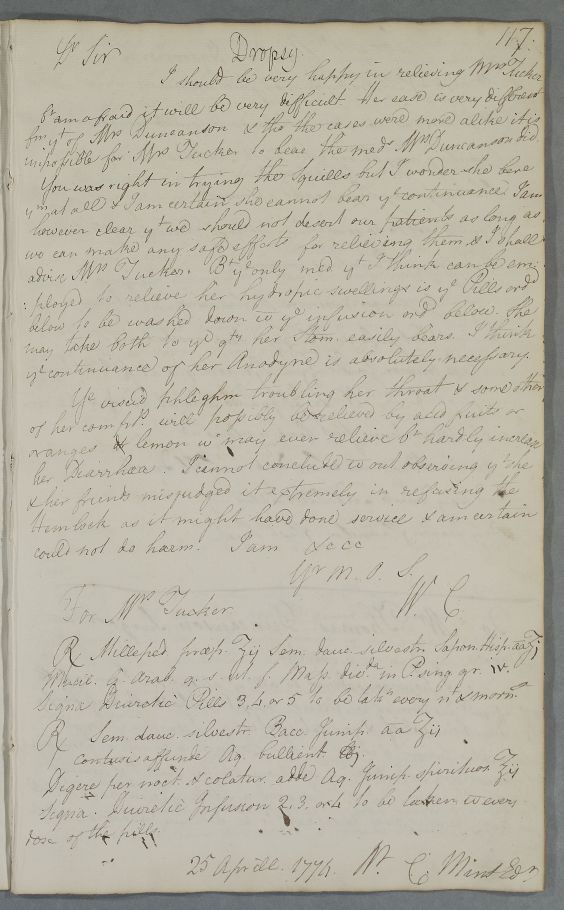 117.
Dr Sir Dropsy.
I should be very happy in relieving Mrs Tucker
bt am afraid it will be very difficult. Her case is very different
fm yt of Mrs Duncanson & tho the cases were more alike it is
impossible for Mrs Tucker to bear the meds Mrs Duncanson did.
You was right in trying the Squills but I wonder she bore
ym at all & I am certain she cannot bear ye continuance. I am
however clear yt we should not desert our patients as long as
we can make any safe efforts for relieving them & I shall
advise Mrs Tucker. Bt ye only med yt I think can be em:
:ployed to relieve her hydropic swellings is ye Pills ord
below to be washed down wt ye infusion ord below. She
may take both to ye qty her Stom. easily bears. I think
ye continuance of her Anodyne is absolutely necessary.
Ye viscid phleghm troubling her throat & some other
of her complts will possibly be relieved by acid fruits or
oranges & lemon wc may even relieve bt hardly increase
her Diarrhœa. I cannot conclude wt out observing yt she
& her friends misjudged it extremely in refusing the
Hemlock as it might have done service & am certain
could not do harm. I am &c cc
Yr M. O. S.
W. C.
For Mrs Tucker
℞ Milleped præp. ʒij Sem. dauc. silvestr. Sapon. Hisp. aa ʒj
Mucil. G. Arab. q. s. ut f. Mass. divda in P. sing gr. IV.
Signa Diuretic Pills 3, 4, or 5 to be takn every nt & morng
℞ Sem. dauc. silvestr. Bacc. Junip. aa ʒij
contusis affunde Aq. bullient. ℔j.
Digere per noct. & colatur. adde Aq. Junip. spirituos. ʒij
Signa. Diuretic Infusion 2, 3, or 4 to be taken wt every
dose of the pills.
25 Aprill. 1774. W. C. Mint Edr